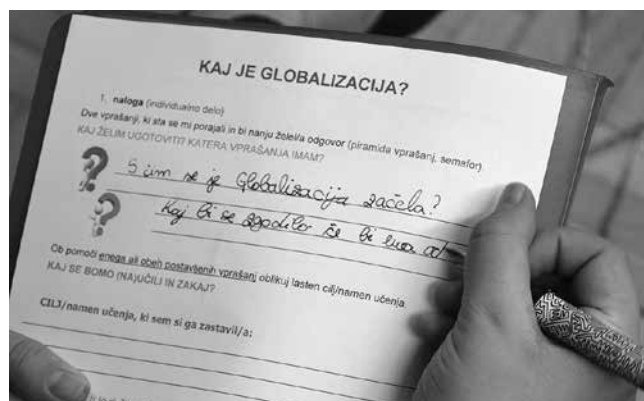 KAJ JE GLOBALIZACIJA?
1. naloga (individualno delo)
Dve vprašanji, ki sta se mi porajali in bi nanju želel/a odgovor (piramida vprašanj, semafor)
KAJ ŽELIM UGOTOVITI? KATERA VPRAŠANJA IMAM?
S čim se je Globalizacija začela?
Kaj bi se zgodilo če bi ena od
Ob pomoči enega ali obeh postavljenih vprašanj oblikuj lasten cilj/namen učenja.
KAJ SE BOMO (NA)UČILI IN ZAKAJ?
CILJ/namen učenja, ki sem si ga zastavil/a: